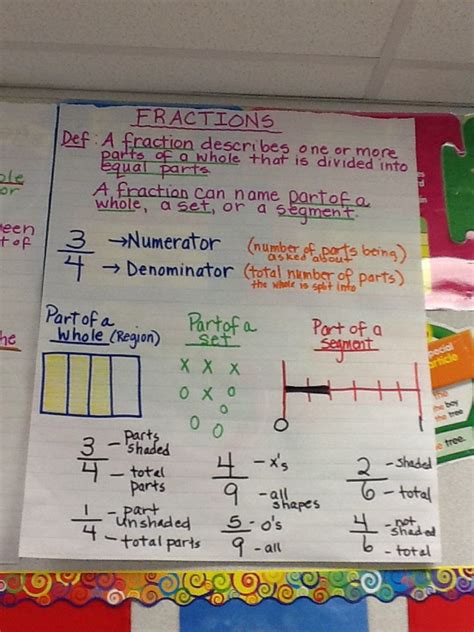 FRACTIONS
Def: A fraction describes one or more
parts of a whole that is divided into
equal parts
A fraction can name part of a
whole, a set, or a segment.
3/4
→Numerator (number of parts being)
asked about
→ Denominator (total number of parts)
the whole is split into
Part of a
whole (Region)
Part of a
set
Part of a
segment
X X X
O X O
O O
O
0 1
3/4 - parts
shaded
- total
parts
1/4 - part
unshaded
- total parts
4/9 - x's
- all
shapes
5/9 - o's
- all
2/6 - shaded
- total
4/6 - not
shaded
- total
the boy
the tree.
tree.